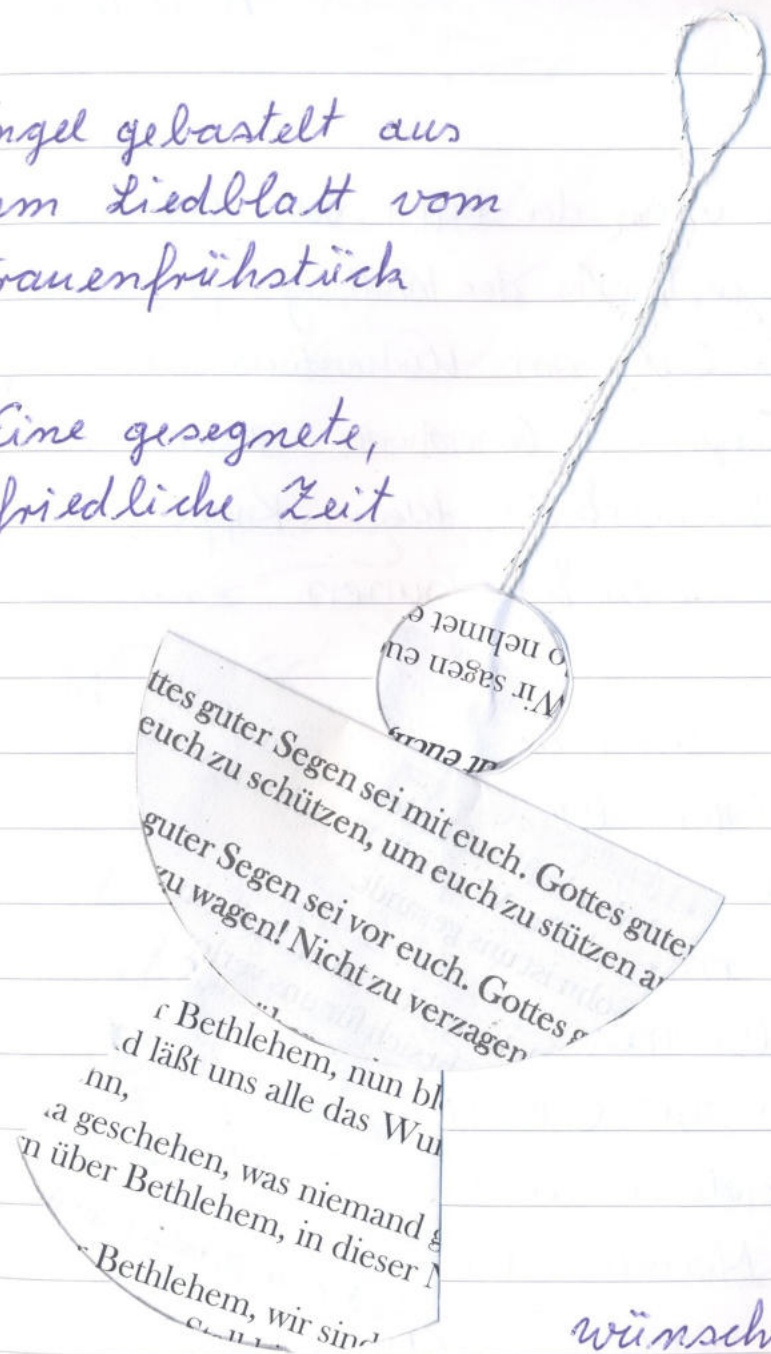 ngel gebastelt aus
em Liedblatt vom
rauenfrühstück
Eine gesegnete,
friedliche Zeit
o nehmet e
Wir sagen eu
ut euch,
ttes guter Segen sei mit euch. Gottes guter
euch zu schützen, um euch zu stützen a
guter Segen sei vor euch. Gottes g
zu wagen! Nicht zu verzagen
r Bethlehem, nun bl
d läßt uns alle das Wun
nn,
a geschehen, was niemand g
n über Bethlehem, in dieser N
Bethlehem, wir sind
wünsch